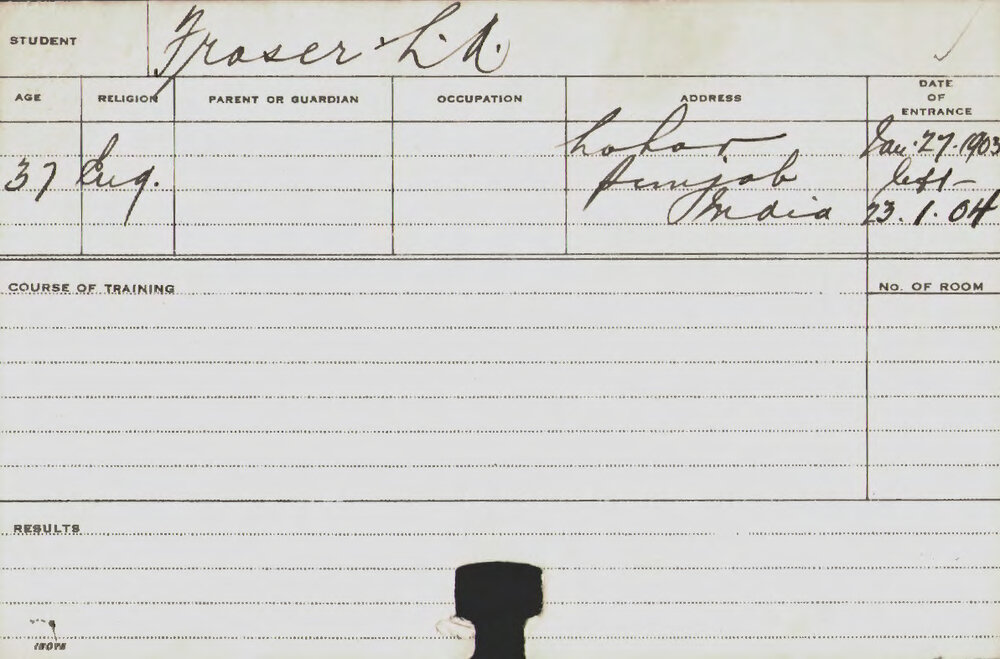 STUDENT Fraser L. A.
AGE RELIGION PARENT OR GUARDIAN OCCUPATION ADDRESS DATE OF ENTRANCE
37 Eng. Lahor Jan. 27. 1903
Punjab left -
India 23. 1. 04
COURSE OF TRAINING No. OF ROOM
RESULTS